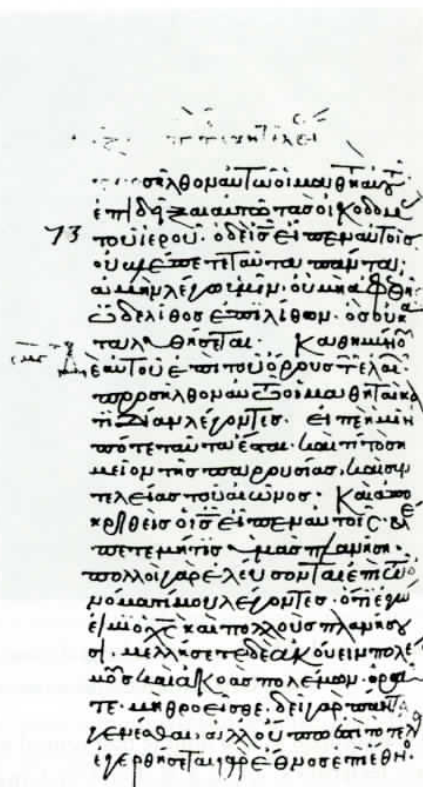 σῆλθον αὐτῶ οἱ μαθηταὶ αὐτοῦ
ἐπιδῆξαι αὐτῶ τὰς οἰκοδομὰς
73 τοῦ ἱεροῦ · ὁ δὲ ι̅ς̅ εἶπεν αὐτοῖς
οὐ βλέπετε ταῦτα πάντα ·
ἀμὴν λέγω ὑμῖν · οὐ μὴ ἀφεθῆ
ὧδε λίθος ἐπὶ λίθον · ὃς οὐ κα
ταλυθήσεται · Καθημένου
δὲ αὐτοῦ ἐπὶ τοῦ ὄρους τ ἐλαι
προσῆλθον αὐτῶ οἱ μαθηταὶ κα
τ ἰδίαν λέγοντες · εἰπὲ ἡμῖν
πότε ταῦτα ἔσται · καὶ τί τὸ ση
μεῖον τῆς παρουσίας · καὶ συν
τελείας τοῦ αἰῶνος · Καὶ ἀπο
κριθεὶς ὁ ι̅ς̅ εἶπεν αὐτοῖς · βλέ
πετε μή τις ὑμᾶς πλανήση ·
πολλοὶ γὰρ ἐλεύσονται ἐπὶ τῶ ὀ
νόματί μου λέγοντες · ὅτι ἐγώ
εἰμι ὁ χ̅ς̅ καὶ πολλοὺς πλανήσου
σι · μελλήσετε δὲ ἀκούειν πολέ
μους καὶ ἀκοὰς πολέμων · ὁρᾶ
τε · μὴ θροεῖσθε · δεῖ γὰρ πάντα
γενέσθαι · ἀλλ οὔπω ἐστὶ τὸ τέλ
ἐγερθήσεται γὰρ ἔθνος ἐπὶ ἔθνος